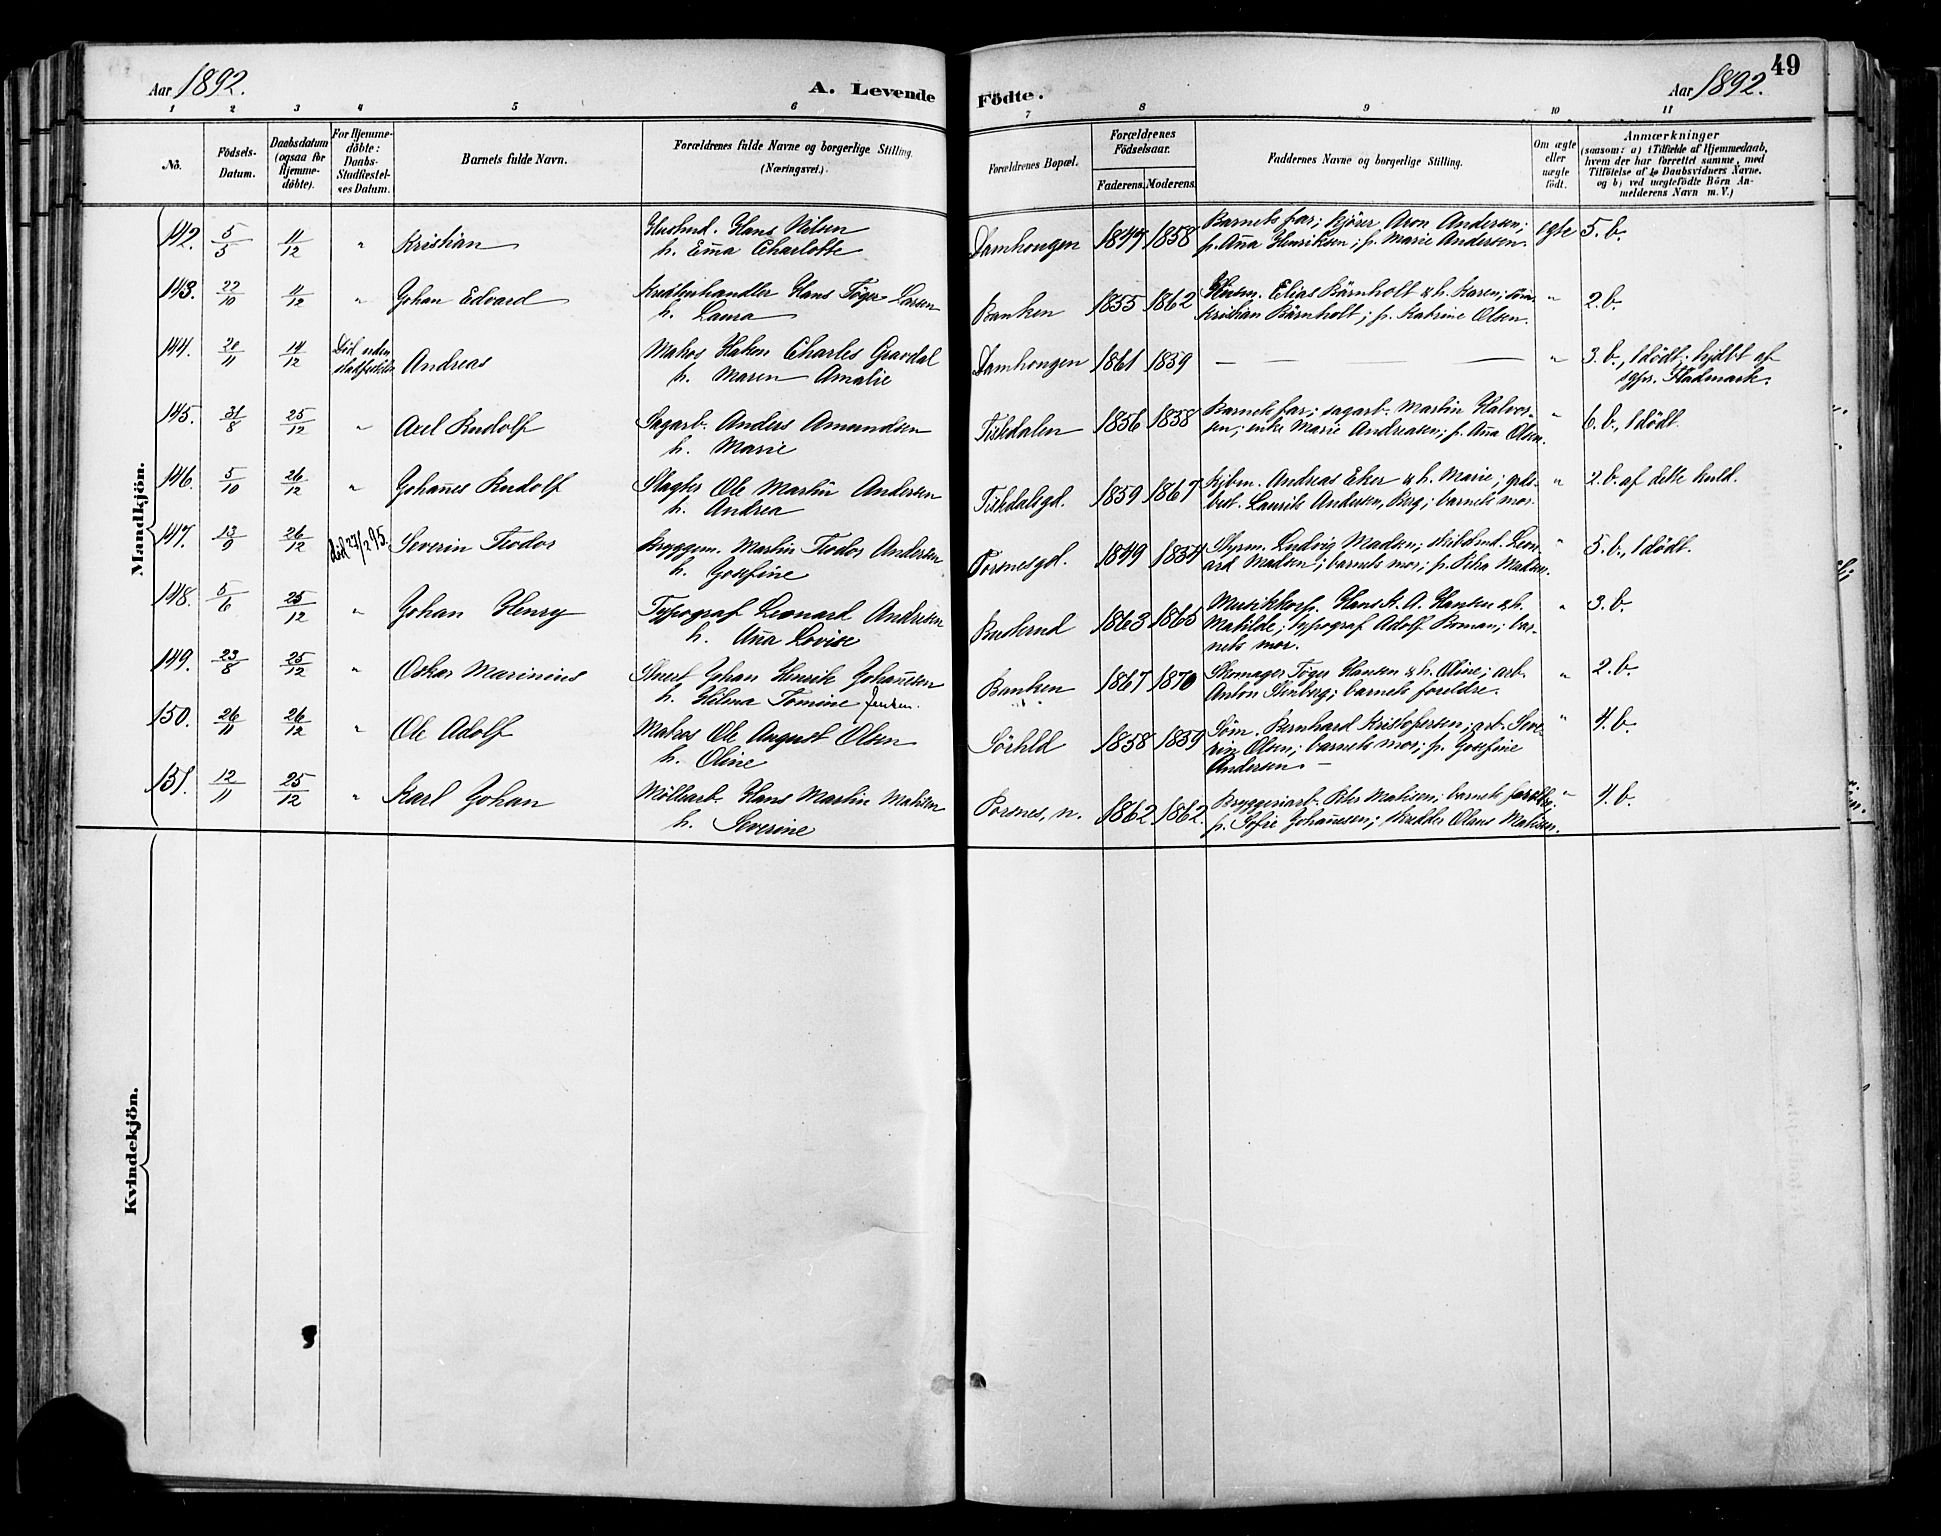 49
Aar 1892.
A. Levende Födte.
Aar 1892.
1 2 3 4 5 6 7 8 9 10 11
No.
Födsels-
Datum.
Daabsdatum
(ogsaa for
Hjemme-
döbte).
For Hjemme-
döbte:
Daabs-
Stadfæstel-
ses Datum.
Barnets fulde Navn.
Forældrenes fulde Navne og borgerlige Stilling.
(Næringsvei.)
Forældrenes Bopæl.
Forældrenes
Födselsaar.
Faderens. Moderens.
Faddernes Navne og borgerlige Stilling.
Om ægte
eller
uægte
födt.
Anmærkninger
(saasom: a) i Tilfælde af Hjemmedaab,
hvem der har forrettet samme, med
Tilföielse af to Daabsvidners Navne.
og b) ved uægtefödte Börn An-
melderens Navn m. V.)
Mandkjön.
142. 5/5 11/12 " Kristian
Husmd. Hans Nilsen
h. Em̄a Charlotte
Damhougen 1847 1858
Barnets far; kjörer Aron Andersen;
p. Aña Henriksen; p. Marie Andersen.
egte 5. b.
143. 22/10 11/12 " Johan Edvard
Kreaturhandler Hans Töger Larsen
h. Laura
Banken 1855 1862
Husm. Elias Bärnholt & h. Karen; söm.
Kristian Bärnholt; p. Katrine Olsen.
" 2. b.
144. 20/11 14/12 Död uden
stadfestelse Andreas
Matros Haken Charles Gravdal
h. Maren Amalie
Damhougen 1861 1859
— — —
" 3. b., 1 dödt; hjdbt af
sgpr. Hadmark.
145. 31/8 25/12 " Axel Rudolf
Sagarb. Anders Amandsen
h. Marie
Tistedalen 1856 1858
Barnets far; sagarb. Martin Halvor-
sen; enke Marie Andreasen; p. Aña Olsen.
" 6. b., 1 dödt.
146. 5/10 26/12 " Johañes Rudolf
Slagter Ole Martin Andersen
h. Andrea
Tistedalsgd. 1859 1867
Kjbm. Andreas Eker & h. Marie; grds-
best. Laurits Andersen, Berg; barnets mor.
" 2. b. af dette kuld.
147. 13/9 26/12 död 27/2 95. Severin Teodor
Bryggem. Martin Teodor Andersen
h. Josefine
Porsnesgd. 1849 1854
Styrm. Ludvig Madsen; skibstmd. Leon-
ard Madsen; barnets mor; p. Petra Madsen.
" 5. b., 1 dödt.
148. 5/6 25/12 " Johan Henry
Typograf Leonard Andersen
h. Añna Lovise
Buskrud 1863 1865
Musikkorp. Hans A. A. Hansen & h.
Matilde; typograf Adolf Roman; bar-
nets mor.
" 3. b.
149. 23/8 25/12 " Oskar Marinius
Stuert Johan Henrik Johañesen
h. Hilma Tomine Jensen.
Banken 1867 1870
Skomager Töger Hansen & h. Oline; arb.
Anton Stenberg; barnets foreldre.
" 2. b.
150. 26/11 26/12 " Ole Adolf
Matros Ole August Olsen
h. Oline
Sörhld 1858 1854
Söm. Bernhard Kristofersen; arb. Seve-
rin Olsen; barnets mor; p. Josefine
Andersen. —
" 4. b.
151. 12/11 25/12 " Karl Johan
Möllearb. Hans Martin Matisen
h. Severine
Porsnes, n. 1862 1862.
Bryggeriarb. Peter Matisen; barnets foreldre;
p. Sofie Johañesen; Olaus Matisen.
" 4. b.
Kvindekjön.